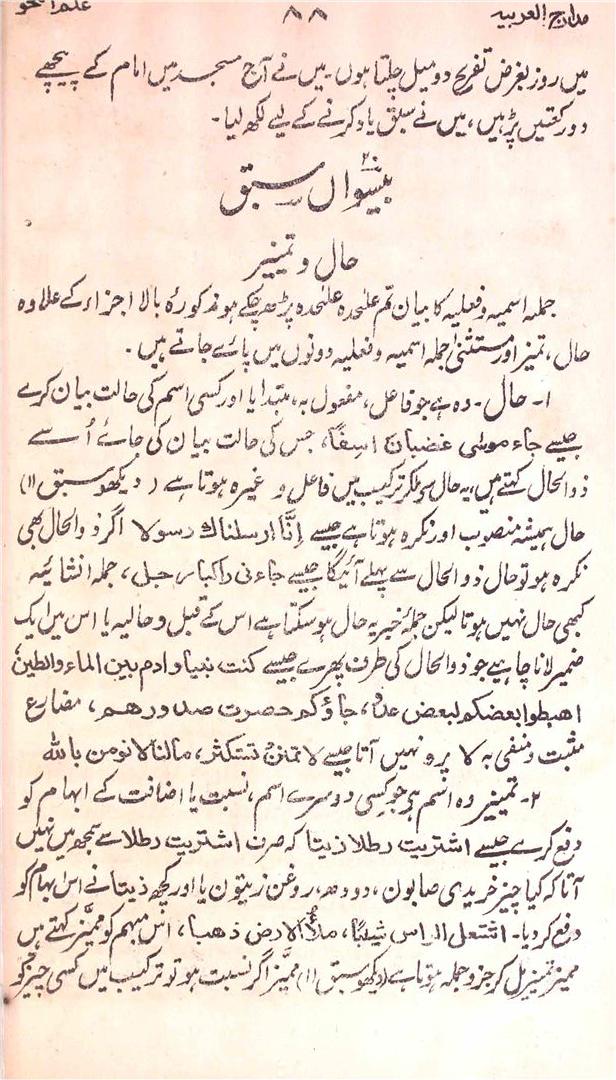 مدارج العربیہ ۸۸ علم النحو
میں روز بغرض تفریح دو میل چلتا ہوں۔ میں نے آج مسجد میں امام کے پیچھے
دو رکعتیں پڑہیں، میں نے سبق یاد کرنے کے لیے لکھ لیا۔
۲۰
بیسواں سبق
حال و تمییز
جملہ اسمیہ و فعلیہ کا بیان تم علٰحدہ علٰحدہ پڑھ چکے ہو مذکورہ بالا اجزاء کے علاوہ
حال، تمیز اور مستثنٰی جملہ اسمیہ و فعلیہ دونوں میں پائے جاتے ہیں۔
۱۔ حال۔ وہ ہے جو فاعل، مفعول بہ، مبتدا یا اور کسی اسم کی حالت بیان کرے
جیسے جاء موسٰی غضبان اسِفًا، جس کی حالت بیان کی جائے اُسے
ذوالحال کہتے ہیں، یہ حال سے ملکر ترکیب میں فاعل و غیرہ ہوتا ہے (دیکھو سبق ۱۱)
حال ہمیشہ منصوب اور نکرہ ہوتا ہے جیسے اِنَّا ارسلناك رسولا اگر ذوالحال بھی
نکرہ ہو تو حال ذوالحال سے پہلے آئیگا جیسے جاءنی راکبا رجل، جملہ انشائیہ
کبھی حال نہیں ہوتا لیکن جملۂ خبریہ حال ہو سکتا ہے اس کے قبل و حالیہ یا اس میں ایک
ضمیر لانا چاہیے جو ذوالحال کی طرف پھرے جیسے کنت نبیا و ادم بین الماء والطین،
اهبطوا بعضکم لبعض عدو، جاؤکم حصرت صدورهم، مضارع
مثبت و منفی بہ لا پر و نہیں آتا جیسے لا تمنن تستکثر، مالنا لا نومن بالله
۲۔ تمییز وہ اسم ہے جو کسی دوسرے اسم، نسبت یا اضافت کے ابہام کو
دفع کرے جیسے اشتریت رطلا زیتا کہ صرف اشتریت رطلا سے سمجھ میں نہیں
آتا کہ کیا چیز خریدی صابون، دودھ، روغن زیتون یا اور کچھ زیتا نے اس ابہام کو
دفع کر دیا۔ اشتعل الراس شیبًا، ملأُ الارض ذهبا، اس مبہم کو ممیَّز کہتے ہیں
ممیز تمییز مل کر جزو جملہ ہوتا ہے (دیکھو سبق ۱۱) ممیَّز اگر نسبت ہو تو ترکیب میں کسی چیز کو